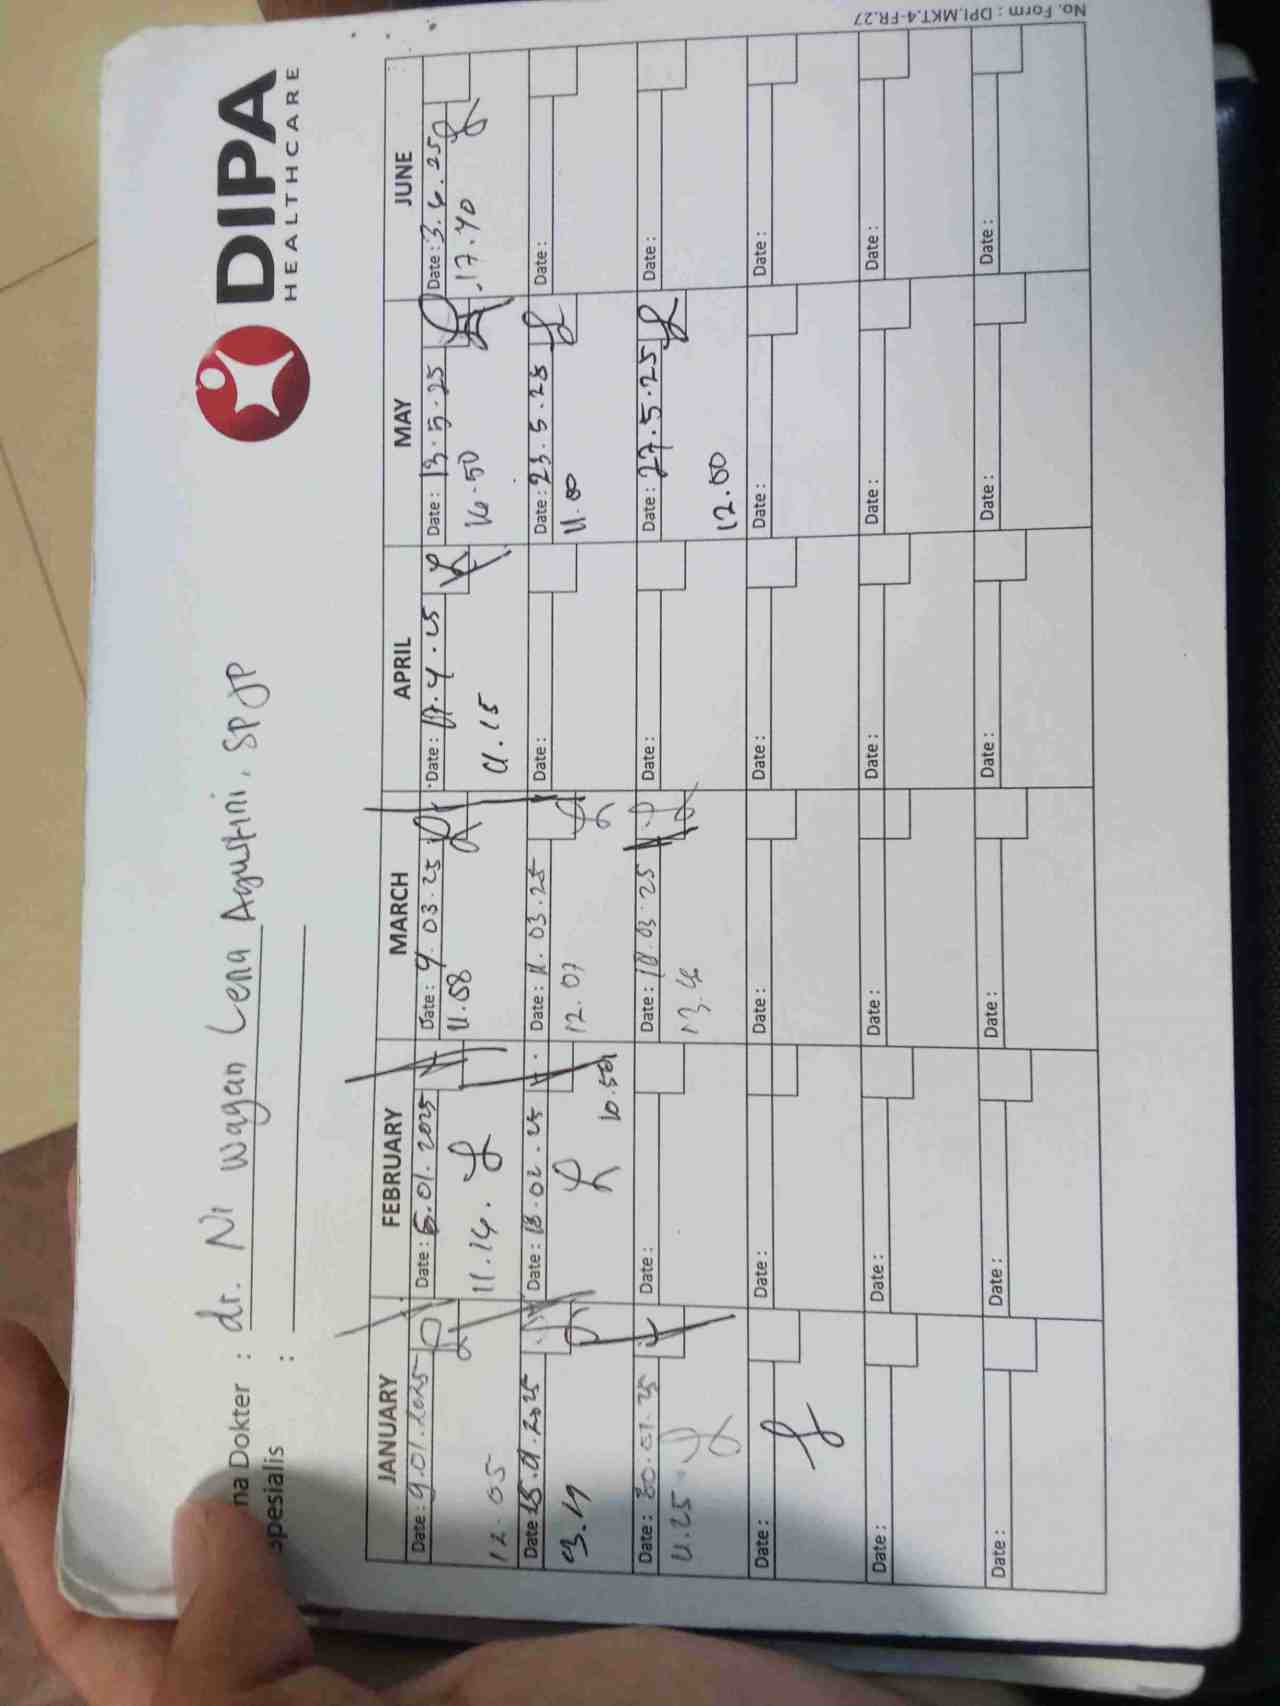 DIPA
HEALTHCARE
na Dokter : dr. Ni Wayan Lena Agustini, SPJP
spesialis :
JANUARY FEBRUARY MARCH APRIL MAY JUNE
Date : 9.01.2025 Date : 6.01.2025 Date : 4.03.25 Date : 17.4.25 Date : 13.5.25 Date : 3.6.25
12.05 11.14. 11.58 11.15 16.50 17.40
Date 15.01.2025 Date : 18.02.25 Date : 11.03.25 Date : Date : 23.5.25 Date :
12.07 11.00
Date : 30.01.25 Date : Date : 18.03.25 Date : Date : 27.5.25 Date :
11.25 12.00
Date : Date : Date : Date : Date : Date :
Date : Date : Date : Date : Date : Date :
Date : Date : Date : Date : Date : Date :
No. Form : DPI.MKT.4-FR.27